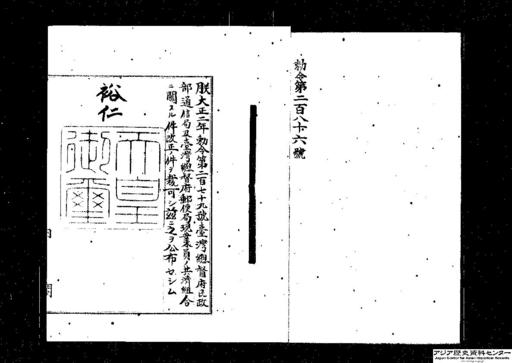 勅令第二百八十六號
朕大正二年勅令第二百七十九號臺灣總督府民政
部通信局及臺灣總督府郵便局現業員ノ共濟組合
ニ關スル件改正ノ件ヲ裁可シ茲ニ之ヲ公布セシム
裕仁
天皇
御璽
アジア歴史資料センター
Japan Center for Asian Historical Records